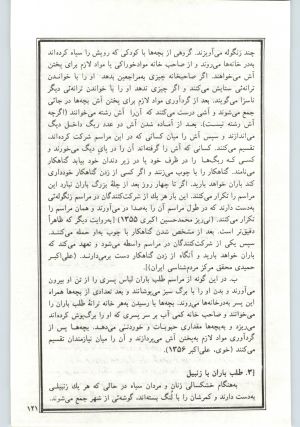 چند زنگوله می‌آویزند. گروهی از بچه‌ها با کودکی که رویش را سیاه کرده‌اند
به‌در خانه‌ها می‌روند و از صاحب خانه موادخوراکی یا مواد لازم برای پختن
آش می‌خواهند. اگر صاحبخانه چیزی به‌مراجعین بدهد او را با خواندن
ترانه‌ئی ستایش می‌کنند و اگر چیزی ندهد او را با خواندن ترانه‌ئی
ناسزا می‌گویند. بعد از گردآوری مواد لازم برای پختن آش بچه‌ها در جائی
جمع می‌شوند و آشی درست می‌کنند که آن‌را آش رشته می‌خوانند (اگرچه
آش رشته نیست). بعد از آماده شدن آش دو عدد ریگ داخل دیگ
می‌اندازند و سپس آش را میان کسانی که در این مراسم شرکت کرده‌اند،
تقسیم می‌کنند. کسانی که آش را گرفته‌اند آن را در پای دیگ می‌خورند و
کسی که ریگ‌ها را در ظرف خود یا در زیر دندان خود بیابد گناهکار
می‌نامند. گناهکار را با چوب می‌زنند و اگر کسی از زدن گناهکار خودداری
کند باران خواهد بارید. اگر تا چهار روز بعد از چلهٔ بزرگ باران نبارد این
مراسم را تکرار می‌کنند. این بار هر یك از شرکت‌کنندگان در مراسم زنگوله‌ئی
به‌دست دارند که در طول مراسم آن را به‌صدا در می‌آورند و همان مراسم را
تکرار می‌کنند. (نی‌ریز محمدحسین اکبری ۱۳۵۵) [به‌روایت دیگر که ظاهراً
دقیق‌تر است. بعد از مشخص شدن گناهکار با چوب به‌او حمله می‌کنند.
سپس یکی از شرکت‌کنندگان در مراسم واسطه می‌شود و تعهد می‌کند که
باران خواهد بارید و آنگاه از زدن گناهکار دست برمی‌دارند. (علی‌اکبر
حمیدی محقق مرکز مردم‌شناسی ایران)].
ب. در این گونه از مراسم طلب باران لباس پسری را از تن او بیرون
می‌آورند و بدن او را با برگ سبز می‌پوشانند و بعد تعدادی از بچه‌ها همراه
این پسر به‌درخانه‌ها می‌روند. بچه‌ها با رسیدن به‌هر خانه ترانهٔ طلب باران را
می‌خوانند و صاحب خانه کمی آب بر سر پسری که او را برگ‌پوش کرده‌اند
می‌ریزد و به‌بچه‌ها مقداری حبوبات و خوردنی می‌دهد. بچه‌ها پس از
گردآوری مواد لازم به‌پختن آش می‌پردازند و آن را میان نیازمندان تقسیم
می‌کنند (خوی، علی‌اکبر ۱۳۵۶).
۳]. طلب باران با زنبیل
به‌هنگام خشکسالی زنان و مردان سیاه در حالی که هر یك زنبیلی
به‌دست دارند و کمرشان را با لُنگ بسته‌اند، گوشه‌ئی از شهر جمع می‌شوند.
۱۲۱